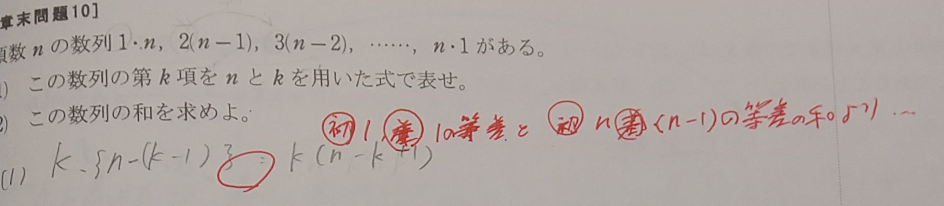 章末問題10]
項数nの数列1・n, 2(n-1), 3(n-2), ……, n・1がある。
) この数列の第k項をnとkを用いた式で表せ。
2) この数列の和を求めよ。
初 1, 差 1の等差と 初 n 差 (n-1)の等差の和より…
(1) k・{n-(k-1)} = k(n-k+1)